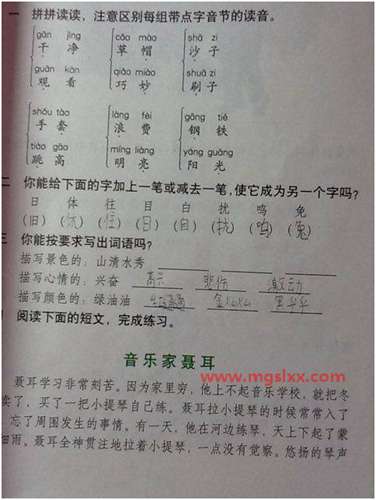 一 拼拼读读，注意区别每组带点字音节的读音。
gān jìng cǎo mào shā zi
干 净 草 帽 沙 子
guān kàn qiǎo miào shuā zi
观 看 巧 妙 刷 子
shǒu tào làng fèi gāng tiě
手 套 浪 费 钢 铁
tiào gāo míng liàng yáng guāng
跳 高 明 亮 阳 光
二 你能给下面的字加上一笔或减去一笔，使它成为另一个字吗？
日 体 往 目 白 扰 鸣 免
(旧) ( ) (住) (日) (自) ( ) (呜) (兔)
三 你能按要求写出词语吗？
描写景色的：山清水秀
描写心情的：兴奋 高兴 悲伤 激动
描写颜色的：绿油油 金灿灿 黑乎乎
阅读下面的短文，完成练习。
音乐家聂耳
www.mgslxx.com
聂耳学习非常刻苦。因为家里穷，他上不起音乐学校，就把冬
卖了，买了一把小提琴自己练。聂耳拉小提琴的时候常常入了
忘了周围发生的事情。有一天，他在河边练琴，天上下起了蒙
细雨。聂耳全神贯注地拉着小提琴，一点没有觉察。悠扬的琴声